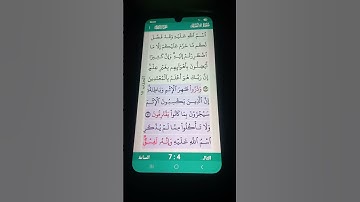 ٱسْمُ ٱللَّهِ عَلَيْهِ وَقَدْ فَصَّلَ
لَكُم مَّا حَرَّمَ عَلَيْكُمْ إِلَّا مَا
ٱضْطُرِرْتُمْ إِلَيْهِ وَإِنَّ كَثِيرًا
لَّيُضِلُّونَ بِأَهْوَآئِهِم بِغَيْرِ عِلْمٍ
إِنَّ رَبَّكَ هُوَ أَعْلَمُ بِٱلْمُعْتَدِينَ
وَذَرُوا۟ ظَٰهِرَ ٱلْإِثْمِ وَبَاطِنَهُۥٓ
إِنَّ ٱلَّذِينَ يَكْسِبُونَ ٱلْإِثْمَ
سَيُجْزَوْنَ بِمَا كَانُوا۟ يَقْتَرِفُونَ
وَلَا تَأْكُلُوا۟ مِمَّا لَمْ يُذْكَرِ
ٱسْمُ ٱللَّهِ عَلَيْهِ وَإِنَّهُۥ لَفِسْقٌ
7:4